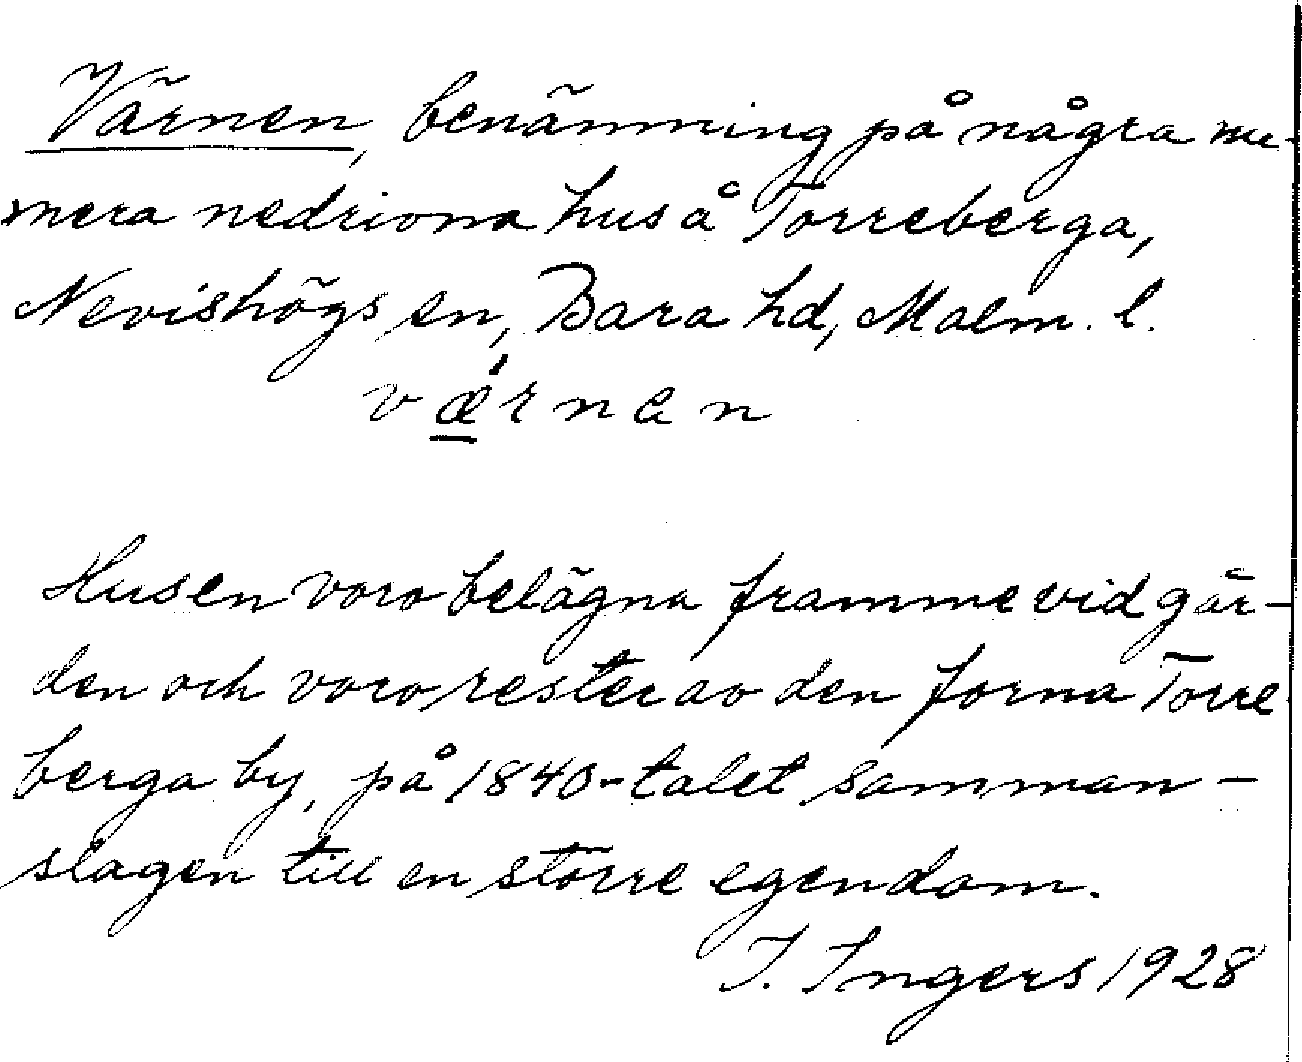 Värnen, benämning på några nu-
mera nedrivna hus å Torreberga,
Nevishögs sn, Bara hd, Malm. l.
værnen
Husen voro belägna framme vid går-
den och voro rester av den forna Torre
berga by, på 1840-talet samman-
slagen till en större egendom.
I. Ingers 1928